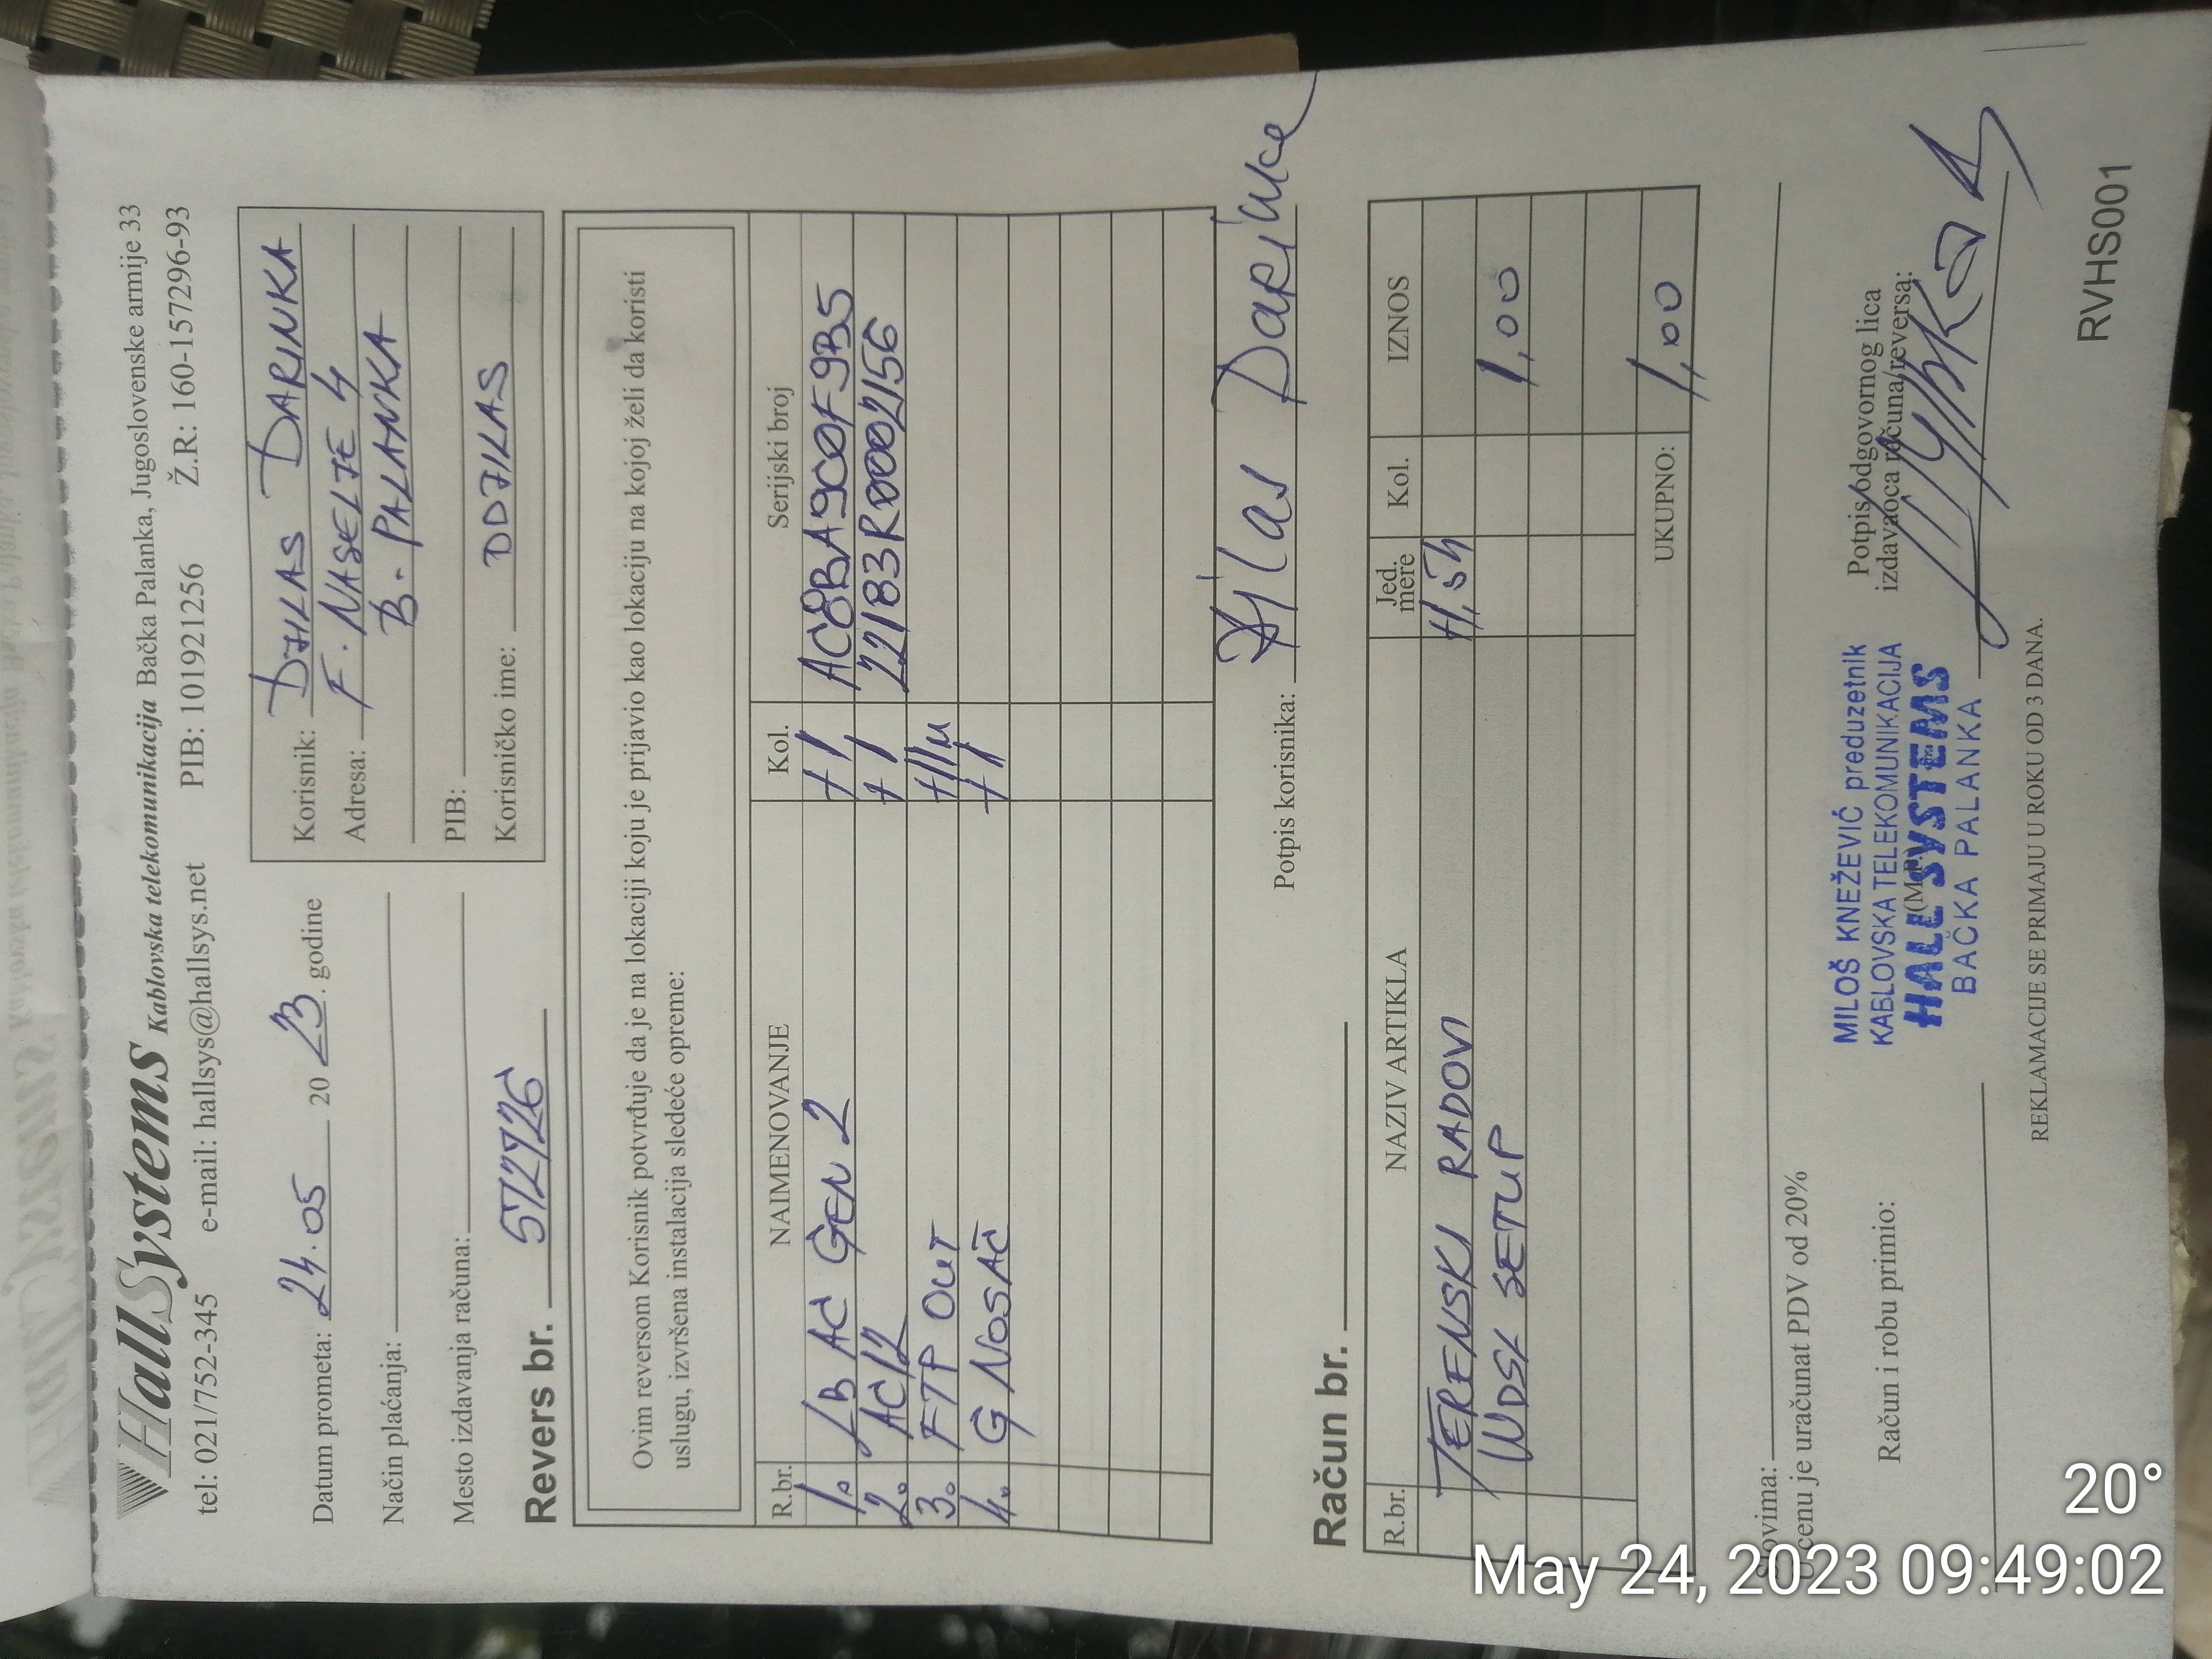 HallSystems Kablovska telekomunikacija Bačka Palanka, Jugoslovenske armije 33
tel: 021/752-345 e-mail: hallsys@hallsys.net PIB: 101921256 Ž.R: 160-157296-93
Datum prometa: 24.05 20 23. godine
Način plaćanja:
Mesto izdavanja računa:
Korisnik: DJILAS DARINKA
Adresa: F. NASELJE 4
B. PALANKA
PIB:
Korisničko ime: DDJILAS
Revers br. 572726
Ovim reversom Korisnik potvrđuje da je na lokaciji koju je prijavio kao lokaciju na kojoj želi da koristi
uslugu, izvršena instalacija sledeće opreme:
R.br. NAIMENOVANJE Kol. Serijski broj
1. LB AC GEN 2 +1 AC8BA9C0F9B5
2. AC12 +1 22183R0002156
3. FTP OUT
4. G NOSAČ +1
Potpis korisnika: Djilas Darinka
Račun br.
R.br. NAZIV ARTIKLA Jed. mere Kol. IZNOS
TERENSKI RADOVI
WDSL SETUP 1,00
UKUPNO: 1,00
ovima:
U cenu je uračunat PDV od 20%
Račun i robu primio:
MILOŠ KNEŽEVIĆ preduzetnik
KABLOVSKA TELEKOMUNIKACIJA
HALL SYSTEMS
BAČKA PALANKA
Potpis odgovornog lica
izdavaoca računa/reversa:
REKLAMACIJE SE PRIMAJU U ROKU OD 3 DANA.
RVHS001
20°
May 24, 2023 09:49:02